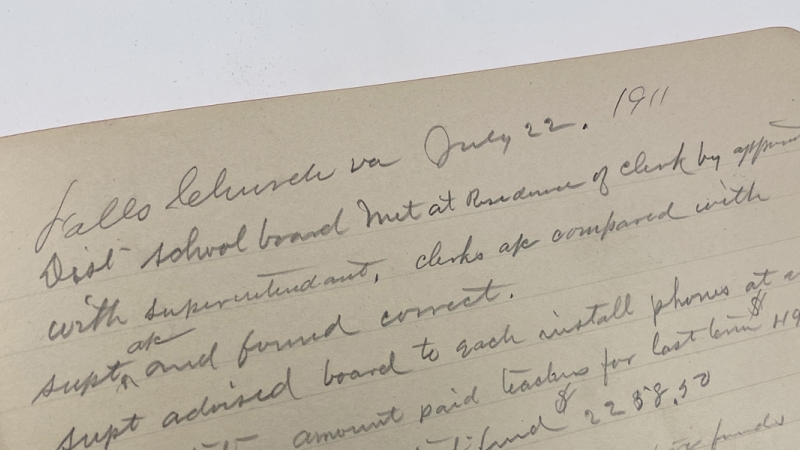 Falls Church va July 22. 1911
Dist school board met at Residence of clerk by
with superentendant, clerks ac compared with
supt ac and found correct.
supt advised board to each install phones at
amount paid teachers for last term $
fund $ 2258.50
funds